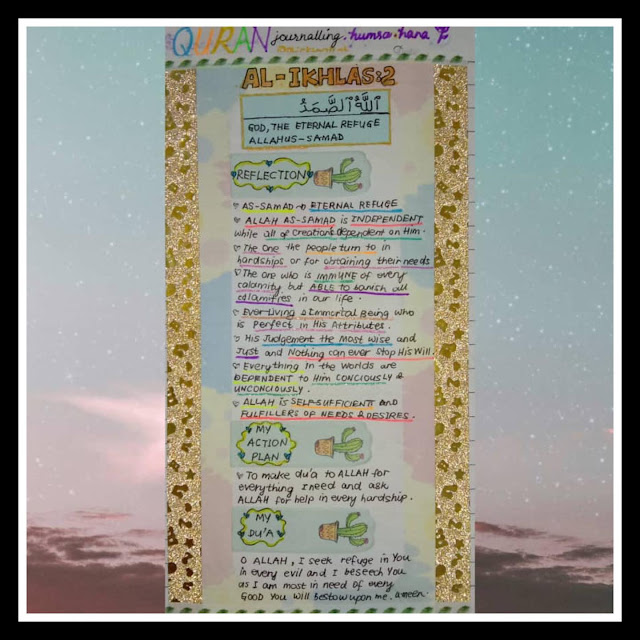 QURAN journalling. humsa.hana
AL-IKHLAS:2
ٱللَّهُ ٱلصَّمَدُ
GOD, THE ETERNAL REFUGE
ALLAHUS-SAMAD
REFLECTION
AS-SAMAD → ETERNAL REFUGE
ALLAH AS-SAMAD is INDEPENDENT
while all of creations dependent on Him.
The One the people turn to in
hardships or for obtaining their needs
The one who is IMMUNE of every
calamity but ABLE to banish all
calamities in our life.
Ever-Living & Immortal Being who
is Perfect in His Attributes.
His Judgement the Most Wise and
Just and Nothing can ever Stop His Will.
Everything in the Worlds are
DEPENDENT to Him CONCIOUSLY &
UNCONCIOUSLY.
ALLAH is SELF-SUFFICIENT and
FULFILLERS OF NEEDS & DESIRES.
MY
ACTION
PLAN
To make du'a to ALLAH for
everything I need and ask
ALLAH for help in every hardship.
MY
DU'A
O ALLAH, I seek refuge in You
in every evil and I beseech You
as I am most in need of every
GOOD You will bestow upon me. ameen.